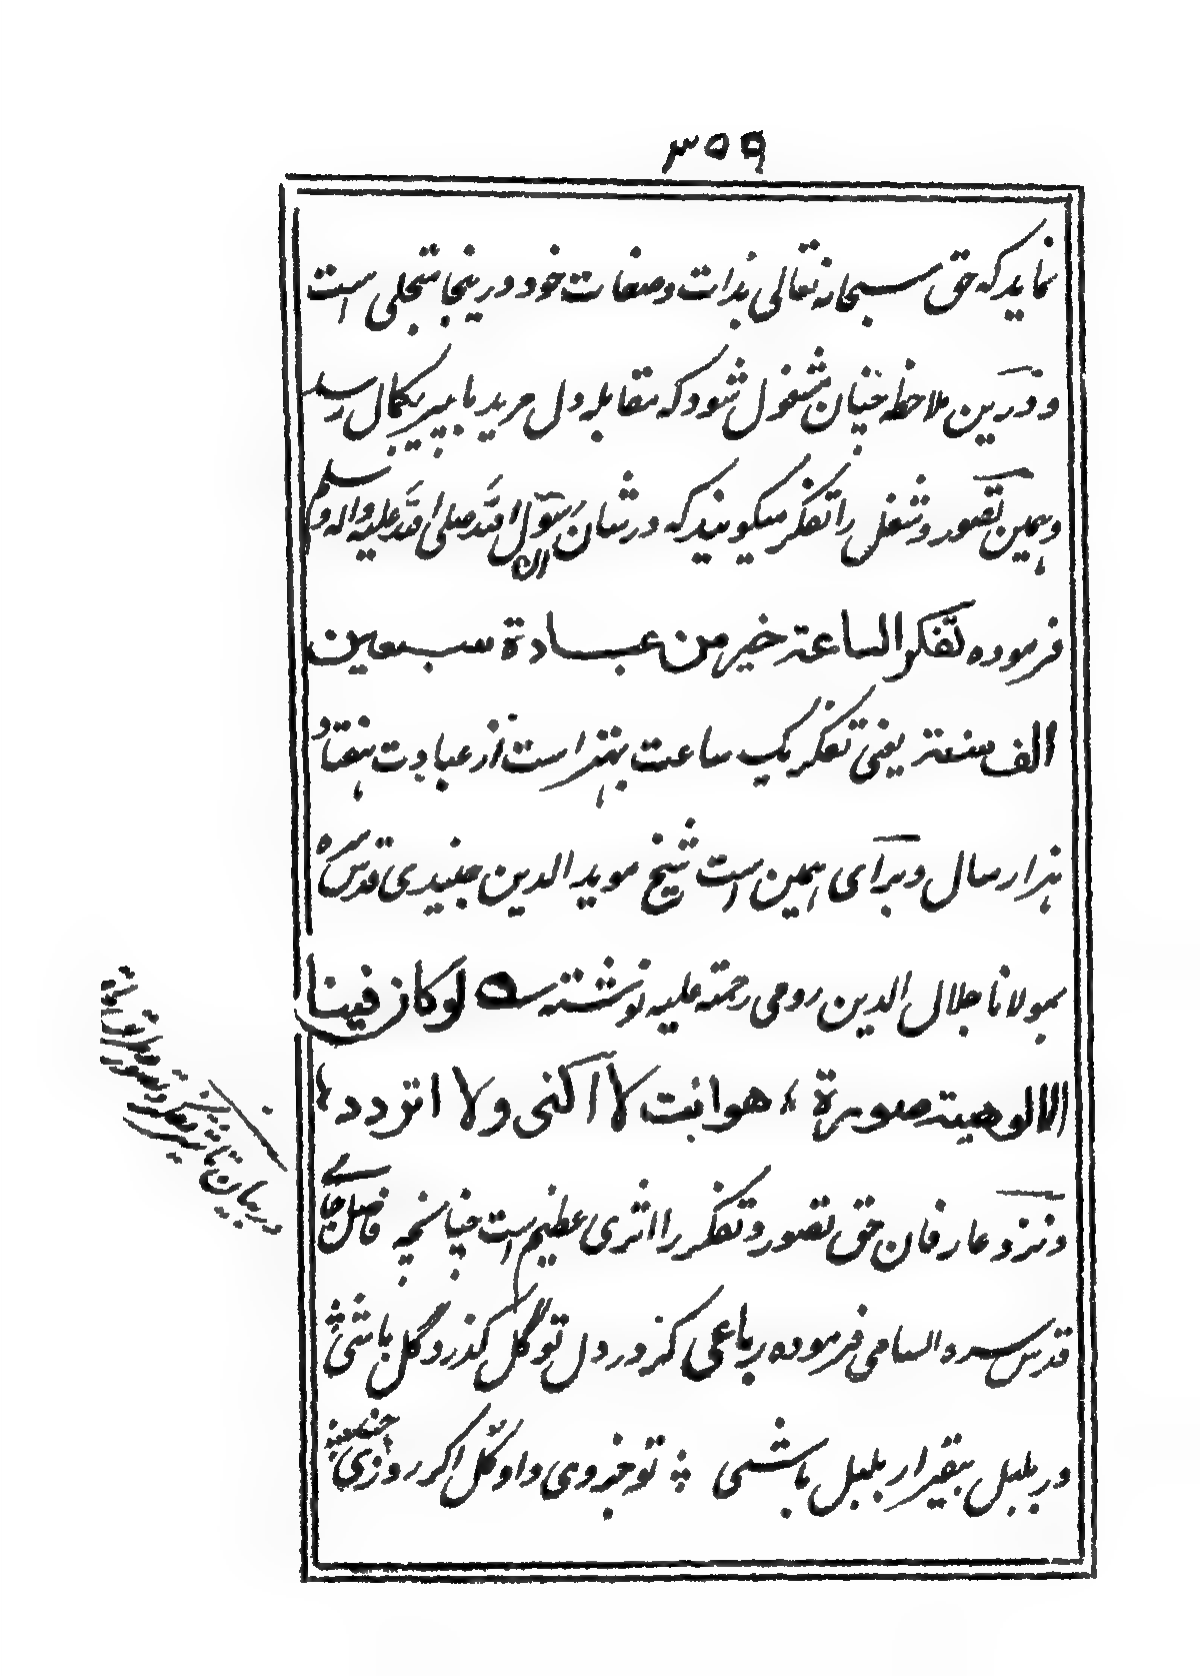 ۳۵۹
نماید که حق سبحانه تعالی بذات و صفات خود درینجا متجلی است
و درین ملاحظه چنان مشغول شود که مقابله دل مرید با پیر بکمال رسد
و همین تصور و شغل را تفکر میگویند که در شان رسول الله صلی الله علیه و اله وسلم
فرموده تفکر الساعته خیر من عبادة سبعین
الف سنته یعنی تفکر یک ساعت بهتر است از عبادت هفتاد
هزار سال و برای همین است شیخ موید الدین جنیدی قدس سره
بمولانا جلال الدین رومی رحمته علیه نوشته ه لوکان فینا
الالوهیته صورة هو انت لا اکنی ولا اتردد
و نزد عارفان حق تصور و تفکر را اثری عظیم است چنانچه فاضل جامی
قدس سره السامی فرموده رباعی گر در دل تو گل گذرد گل باشی
ور بلبل بیقرار بلبل باشی تو جزوی و او کل اگر روزی چند
در بیان تاثیر تفکر و تصور